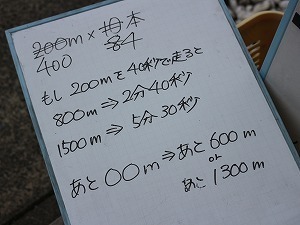 200m × 10本
400 84
もし 200mを40秒で走ると
800m ⇒ 2分40秒
1500m ⇒ 5分30秒
あと〇〇m ⇒ あと600m
or
あと1300m